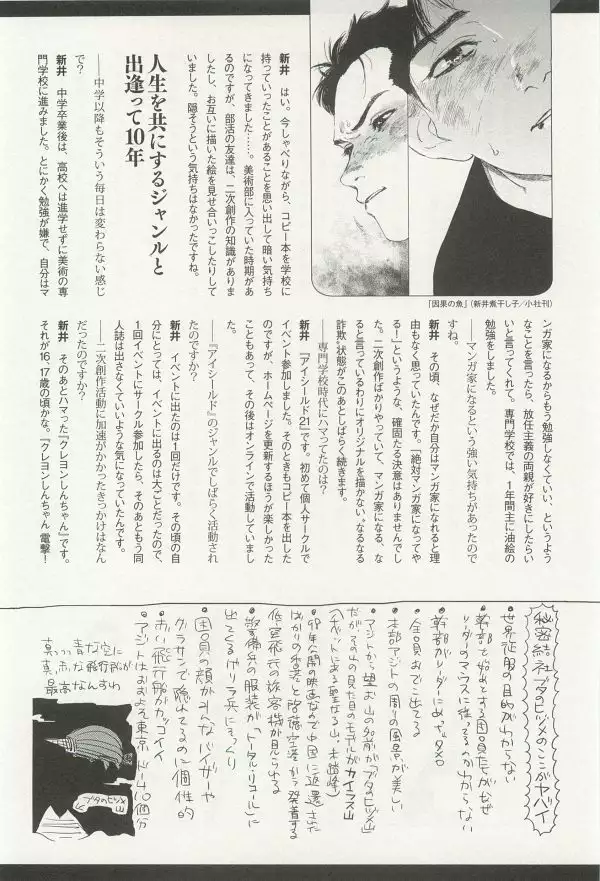 新井　はい。今しゃべりながら、コピー本を学校に
持っていったことがあることを思い出して暗い気持ち
になってきました……。美術部に入っていた時期があ
るのですが、部活の友達は、二次創作の知識がありま
したし、お互いに描いた絵を見せ合いっこしたりして
いました。隠そうという気持ちはなかったですね。
人生を共にするジャンルと
出逢って10年
――中学以降もそういう毎日は変わらない感じ
で？
新井　中学卒業後は、高校へは進学せずに美術の専
門学校に進みました。とにかく勉強が嫌で、自分はマ
『因果の魚』（新井煮干し子／小社刊）
ンガ家になるからもう勉強しなくていい、というよう
なことを言ったら、放任主義の両親が好きにしたらい
いと言ってくれて。専門学校では、1年間主に油絵の
勉強をしました。
――マンガ家になるという強い気持ちがあったので
すね。
新井　その頃、なぜだか自分はマンガ家になれると理
由もなく思っていたんです。「絶対マンガ家になってや
る！」というような、確固たる決意はありませんでし
た。二次創作ばかりやっていて、マンガ家になる、な
ると言っているわりにオリジナルを描かない。"なるなる
詐欺"状態がこのあとしばらく続きます。
――専門学校時代にハマってたのは？
新井　『アイシールド21』です。初めて個人サークルで
イベント参加しました。そのときもコピー本を出した
のですが、ホームページを更新するほうが楽しかった
こともあって、その後はオンラインで活動していまし
た。
――『アイシールド』のジャンルでしばらく活動され
たのですか？
新井　イベントに出たのは1回だけです。その頃の自
分にとっては、イベントに出るのは大ごとだったので、
1回イベントにサークル参加したら、そのあともう同
人誌は出さなくていいような気になっていたんです。
――二次創作活動に加速がかかったきっかけはなん
だったのですか？
新井　そのあとハマった『クレヨンしんちゃん』です。
それが16、17歳の頃かな。『クレヨンしんちゃん 電撃！
秘密結社ブタのヒヅメのここがヤバイ
・世界征服の目的がわからない
・幹部で始めとする団員たちがなぜ
リーダーのマウスに従ってるのかわからない
・幹部がリーダーにめっちゃタメ口
・全員おでこ出てる
・本部アジトの周りの風景が美しい
・アジトから望むお山の名前が「ブタのヒヅメ山」
だがその山の見た目のモデルがカイラス山
（チベットにある聖なる山。未踏峰）
・98年公開の映画なので中国に返還された
ばかりの香港と啓徳空港から発着する
低空飛行の旅客機が見られる
・警備兵の服装が「トータル・リコール」に
出てくるゲリラ兵にそっくり
・団員の顔がみんなバイザーや
グラサンで隠れてるのに個性的
・赤い飛行船がカッコイイ
・アジトはおおよそ東京ドーム40個分
真っっっ青な空に
真っ赤な飛行船が
最高なんすわ
ブタのヒヅメ山